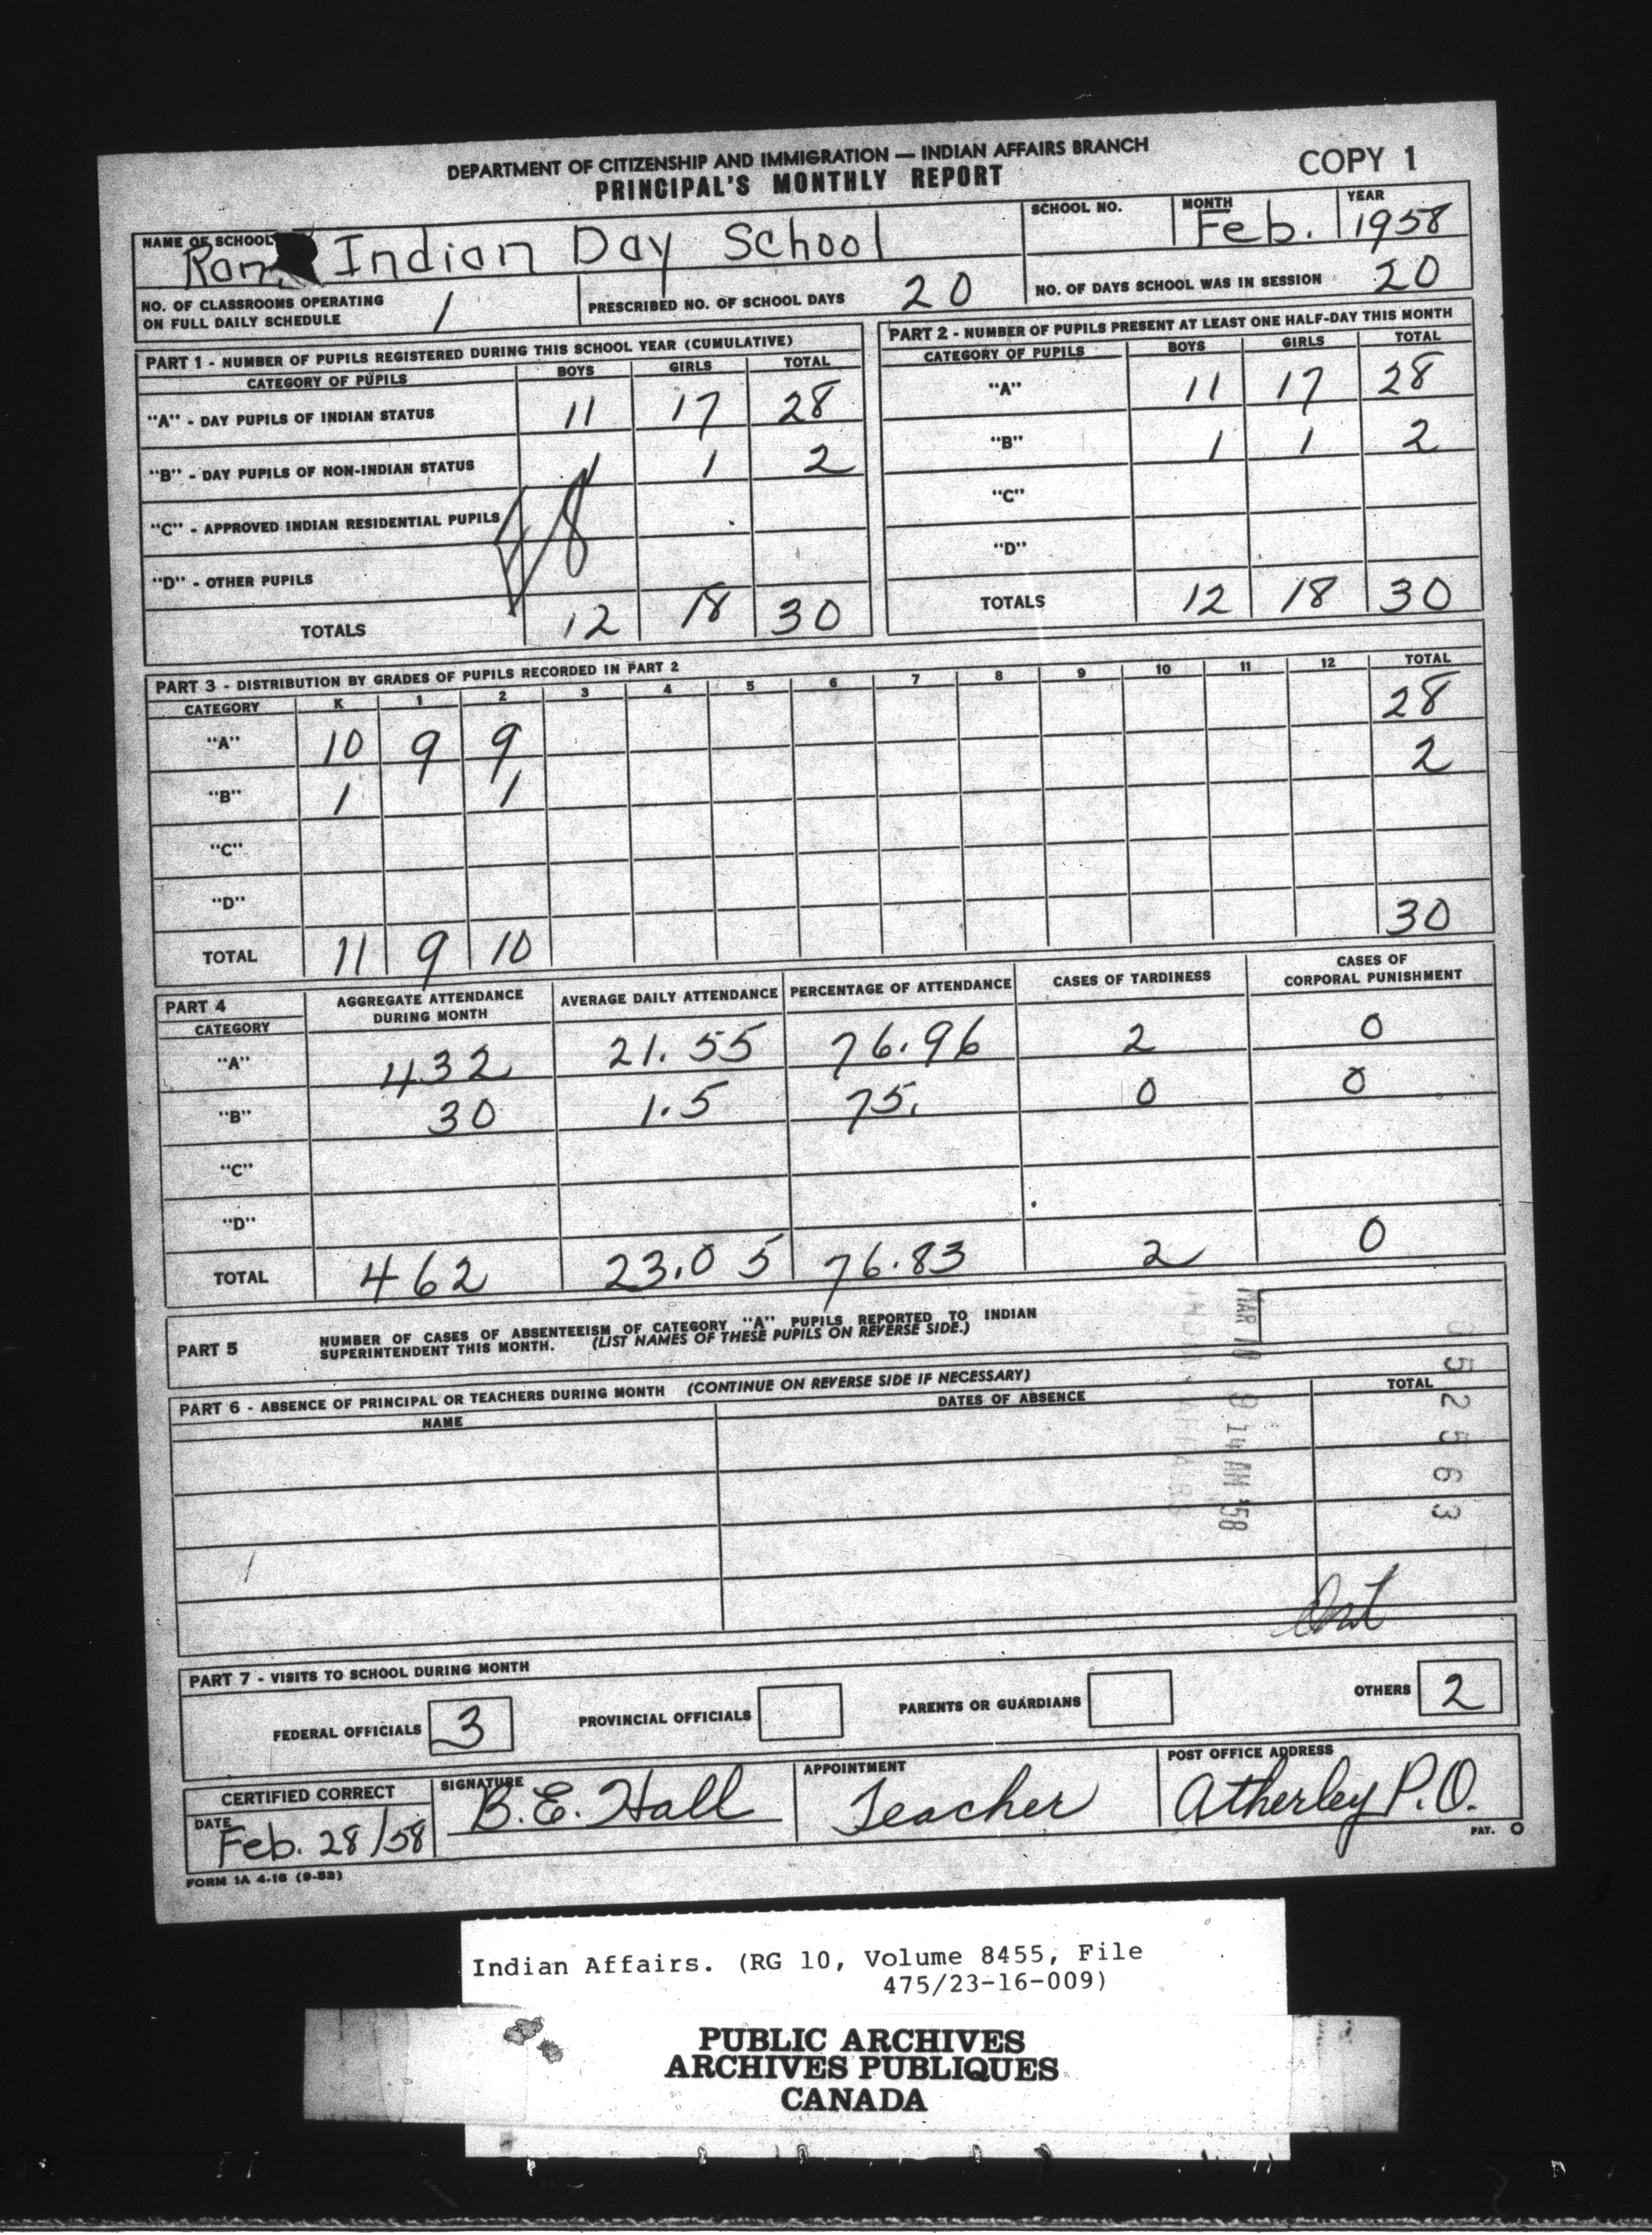 DEPARTMENT OF CITIZENSHIP AND IMMIGRATION — INDIAN AFFAIRS BRANCH
PRINCIPAL'S MONTHLY REPORT
COPY 1
NAME OF SCHOOL Indian Day School
SCHOOL NO.
MONTH Feb.
YEAR 1958
NO. OF CLASSROOMS OPERATING
ON FULL DAILY SCHEDULE 1
PRESCRIBED NO. OF SCHOOL DAYS 20
NO. OF DAYS SCHOOL WAS IN SESSION 20
PART 1 - NUMBER OF PUPILS REGISTERED DURING THIS SCHOOL YEAR (CUMULATIVE)
CATEGORY OF PUPILS BOYS GIRLS TOTAL
"A" - DAY PUPILS OF INDIAN STATUS 11 17 28
"B" - DAY PUPILS OF NON-INDIAN STATUS 1 1 2
"C" - APPROVED INDIAN RESIDENTIAL PUPILS
"D" - OTHER PUPILS
TOTALS 12 18 30
PART 2 - NUMBER OF PUPILS PRESENT AT LEAST ONE HALF-DAY THIS MONTH
CATEGORY OF PUPILS BOYS GIRLS TOTAL
"A" 11 17 28
"B" 1 1 2
"C"
"D"
TOTALS 12 18 30
PART 3 - DISTRIBUTION BY GRADES OF PUPILS RECORDED IN PART 2
CATEGORY K 1 2 3 4 5 6 7 8 9 10 11 12 TOTAL
"A" 10 9 9 28
"B" 1 1 2
"C"
"D"
TOTAL 11 9 10 30
PART 4
CATEGORY
AGGREGATE ATTENDANCE
DURING MONTH
AVERAGE DAILY ATTENDANCE
PERCENTAGE OF ATTENDANCE
CASES OF TARDINESS
CASES OF
CORPORAL PUNISHMENT
"A" 432 21.55 76.96 2 0
"B" 30 1.5 75. 0 0
"C"
"D"
TOTAL 462 23.05 76.83 2 0
PART 5
NUMBER OF CASES OF ABSENTEEISM OF CATEGORY "A" PUPILS REPORTED TO INDIAN
SUPERINTENDENT THIS MONTH. (LIST NAMES OF THESE PUPILS ON REVERSE SIDE.)
PART 6 - ABSENCE OF PRINCIPAL OR TEACHERS DURING MONTH (CONTINUE ON REVERSE SIDE IF NECESSARY)
NAME DATES OF ABSENCE TOTAL
MAR 10 9 14 AM '58
INDIAN AFFAIRS
052563
PART 7 - VISITS TO SCHOOL DURING MONTH
FEDERAL OFFICIALS 3
PROVINCIAL OFFICIALS
PARENTS OR GUARDIANS
OTHERS 2
CERTIFIED CORRECT
DATE Feb. 28/58
SIGNATURE B.E. Hall
APPOINTMENT Teacher
POST OFFICE ADDRESS Atherley P.O.
PAT. O
FORM 1A 4-16 (9-53)
Indian Affairs. (RG 10, Volume 8455, File
475/23-16-009)
PUBLIC ARCHIVES
ARCHIVES PUBLIQUES
CANADA